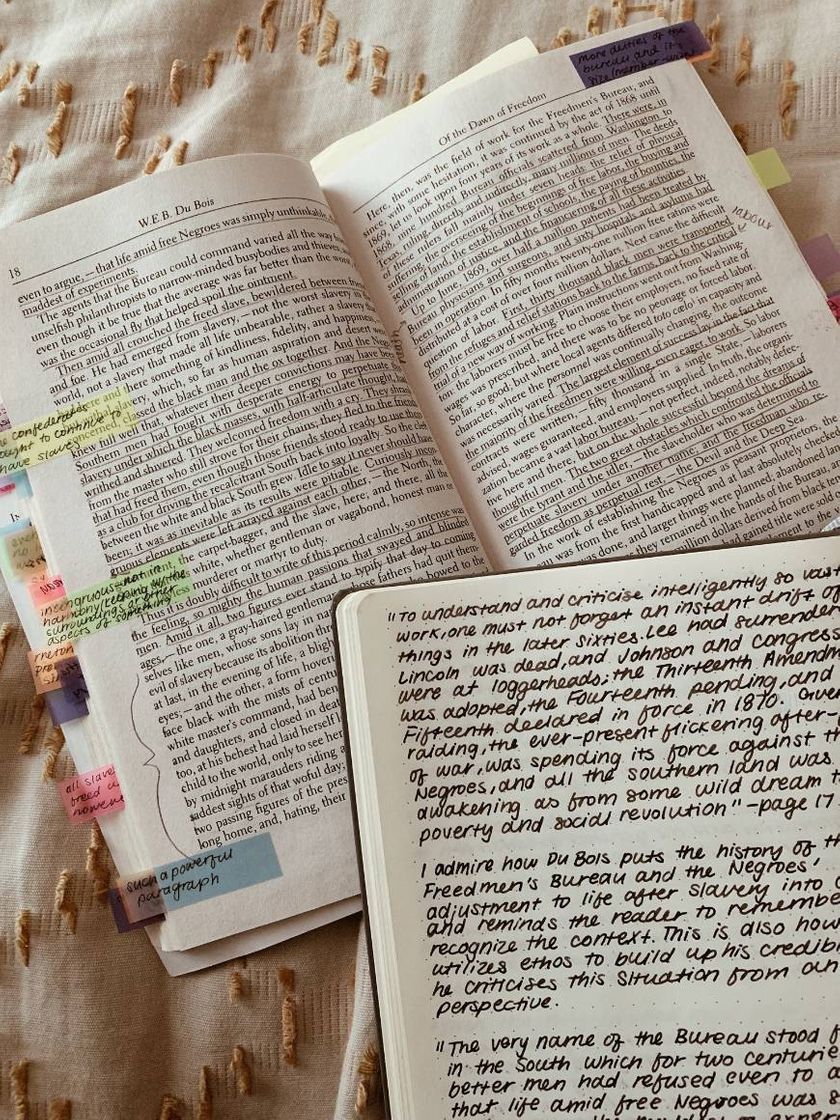 18
W.E.B. Du Bois
even to argue,—that life amid free Negroes was simply unthinkable,
maddest of experiments.
The agents that the Bureau could command varied all the way
unselfish philanthropists to narrow-minded busybodies and thieves;
even though it be true that the average was far better than the
was the occasional fly that helped spoil the ointment.
Then amid all crouched the freed slave, bewildered between
and foe. He had emerged from slavery,—not the worst slavery in
world, not a slavery that made all life unbearable, rather a slavery
here and there something of kindliness, fidelity, and happiness,
slavery, which, so far as human aspiration and desert
classed the black man and the ox together. And the
knew full well that, whatever their deeper convictions may have
Southern men had fought with desperate energy to perpetuate
slavery under which the black masses, with half-articulate thought, had
writhed and shivered. They welcomed freedom with a cry. They
from the master who still strove for their chains; they fled to the friends
that had freed them, even though those friends stood ready to use them
as a club for driving the recalcitrant South back into loyalty. So the
between the white and black South grew. Idle to say it never should have
been; it was as inevitable as its results were pitiable. Curiously
gruous elements were left arrayed against each other,—the North, the
the carpet-bagger, and the slave, here; and there, all the
white, whether gentleman or vagabond, honest man
murderer or martyr to duty.
Thus it is doubly difficult to write of this period calmly, so intense was
the feeling, so mighty the human passions that swayed and blinded
men. Amid it all, two figures ever stand to typify that day to coming
ages,—the one, a gray-haired gentleman, whose fathers had quit them-
selves like men, whose sons lay in
evil of slavery because its abolition
at last, in the evening of life, a
eyes;—and the other, a form
face black with the mists of
white master's command, had
and daughters, and closed in
too, at his behest had laid herself
child to the world, only to see her
by midnight marauders riding
saddest sights of that woful day;
two passing figures of the
long home, and, hating, their
ought to continue to
have slave
incongruous-not in
harmony/keeping w/the
surroundings or other
aspects of something
all slaves
freed
however
such a powerful
paragraph
more duties of the
bureau and it's
size/member-wise
Of the Dawn of Freedom
Here, then, was the field of work for the Freedmen's Bureau; and
since, with some hesitation, it was continued by the act of 1868 until
1869, let us look upon four years of its work as a whole. There were, in
1868, nine hundred Bureau officials scattered from Washington to
Texas, ruling, directly and indirectly, many millions of men. The deeds
of these rulers fall mainly under seven heads: the relief of physical
suffering, the overseeing of the beginnings of free labor, the buying and
selling of land, the establishment of schools, the paying of bounties, the
administration of justice, and the financiering of all these activities.
Up to June, 1869, over half a million patients had been treated by
Bureau physicians and surgeons, and sixty hospitals and asylums had
been in operation. In fifty months twenty-one million free rations were
distributed at a cost of over four million dollars. Next came the difficult
question of labor. First, thirty thousand black men were transported
from the refuges and relief stations back to the farms, back to the critical
trial of a new way of working. Plain instructions went out from Washing-
the laborers must be free to choose their employers, no fixed rate of
wages was prescribed, and there was to be no peonage or forced labor.
So far, so good; but where local agents differed toto cœlo in capacity and
character, where the personnel was continually changing, the outcome
was necessarily varied. The largest element of success lay in the fact that
the majority of the freedmen were willing, even eager, to work. So labor
contracts were written,—fifty thousand in a single State,—laborers
advised, wages guaranteed, and employers supplied. In truth, the organi-
zation became a vast labor bureau,—not perfect, indeed, notably defec-
tive here and there, but on the whole successful beyond the dreams of
thoughtful men. The two great obstacles which confronted the officials
were the tyrant and the idler,—the slaveholder who was determined to
perpetuate slavery under another name; and, the freedman who re-
garded freedom as perpetual rest,—the Devil and the Deep Sea.
In the work of establishing the Negroes as peasant proprietors, the
Bureau was from the first handicapped and at last absolutely checked.
was done, and larger things were planned; abandoned
they remained in the hands of the Bureau,
million dollars derived from black
had gained title were sold
labour
"To understand and criticise intelligently so vast
work, one must not forget an instant drift of
things in the later sixties. Lee had surrendered
Lincoln was dead, and Johnson and Congress
were at loggerheads; the Thirteenth Amendment
was adopted, the Fourteenth pending, and
Fifteenth declared in force in 1870.
raiding, the ever-present flickering after-
of war, was spending its force against the
Negroes, and all the southern land was
awakening as from some wild dream to
poverty and social revolution" -page 17
I admire how Du Bois puts the history of the
Freedmen's Bureau and the Negroes'
adjustment to life after slavery into
and reminds the reader to remember
recognize the context. This is also how
utilizes ethos to build up his
he criticises this situation from an
perspective.
"The very name of the Bureau stood
in the South which for two centuries
better men had refused even to
that life amid free Negroes was